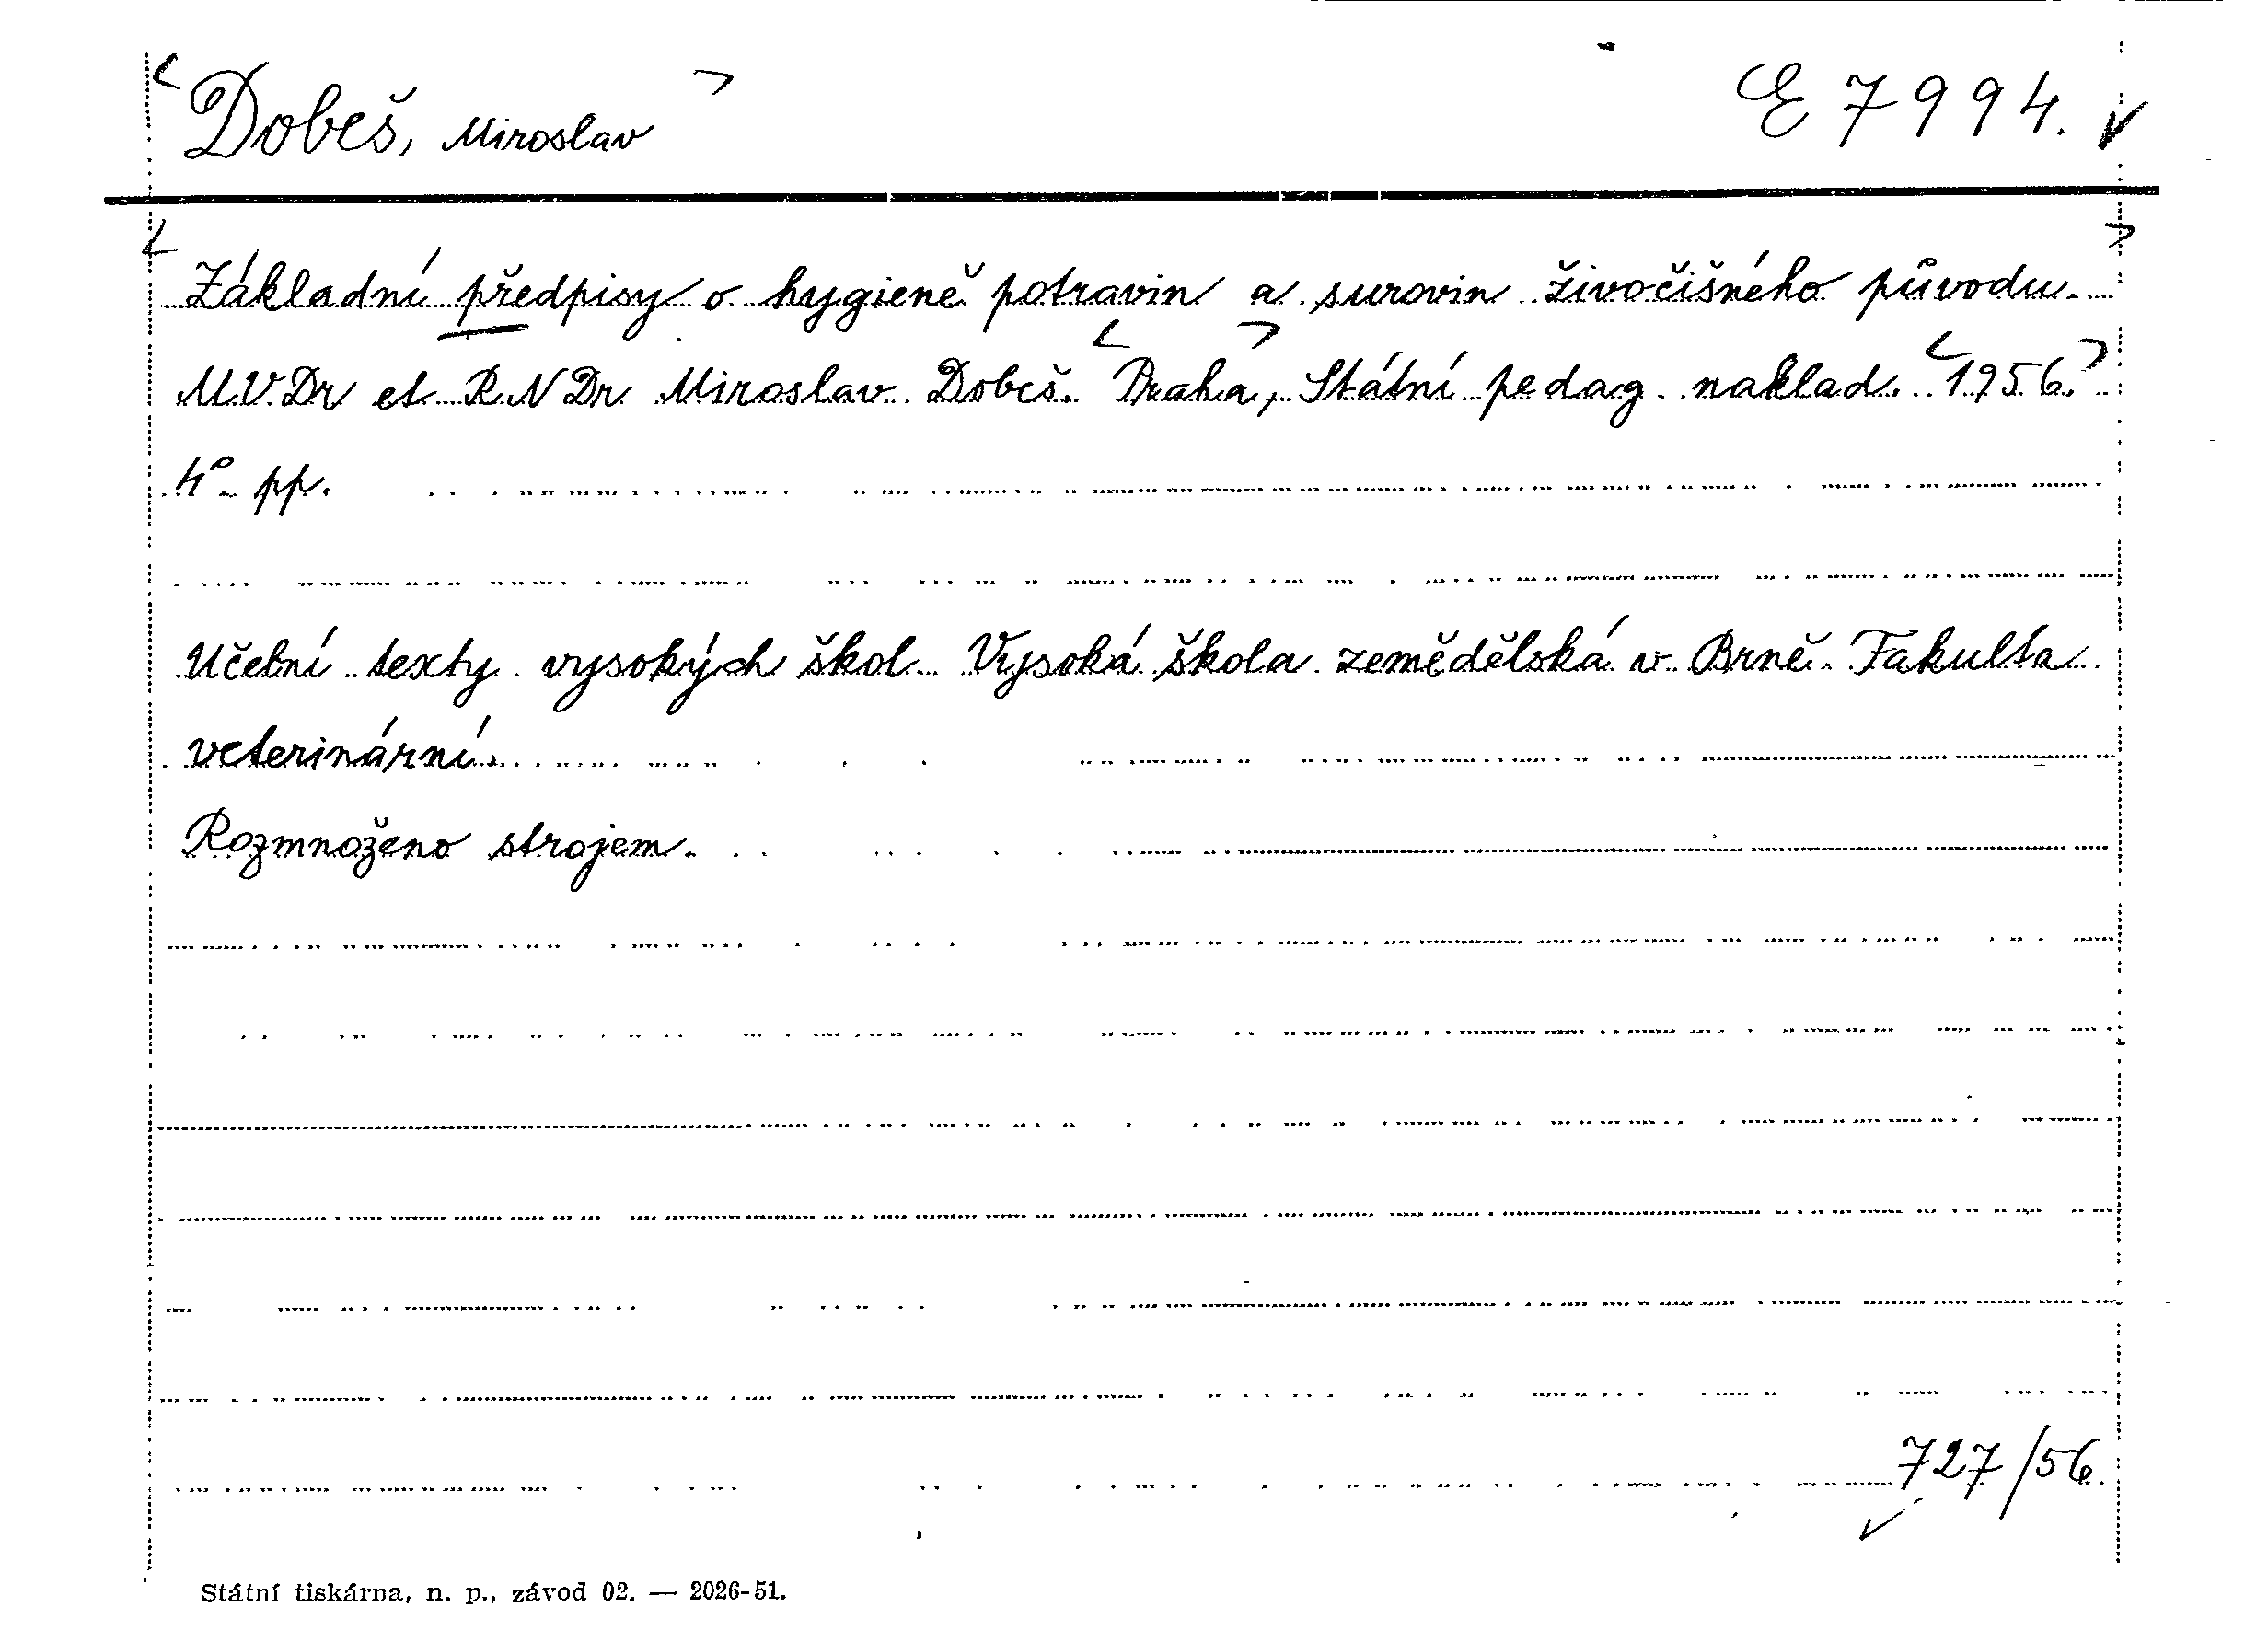 Dobeš, Miroslav E 7994.
Základní předpisy o hygieně potravin a surovin živočišného původu.
MVDr et RNDr Miroslav Dobeš. Praha, Státní pedag. naklad. 1956.
4° pp.
Učební texty vysokých škol. Vysoká škola zemědělská v Brně. Fakulta
veterinární.
Rozmnoženo strojem.
727/56.
Státní tiskárna, n. p., závod 02. — 2026-51.